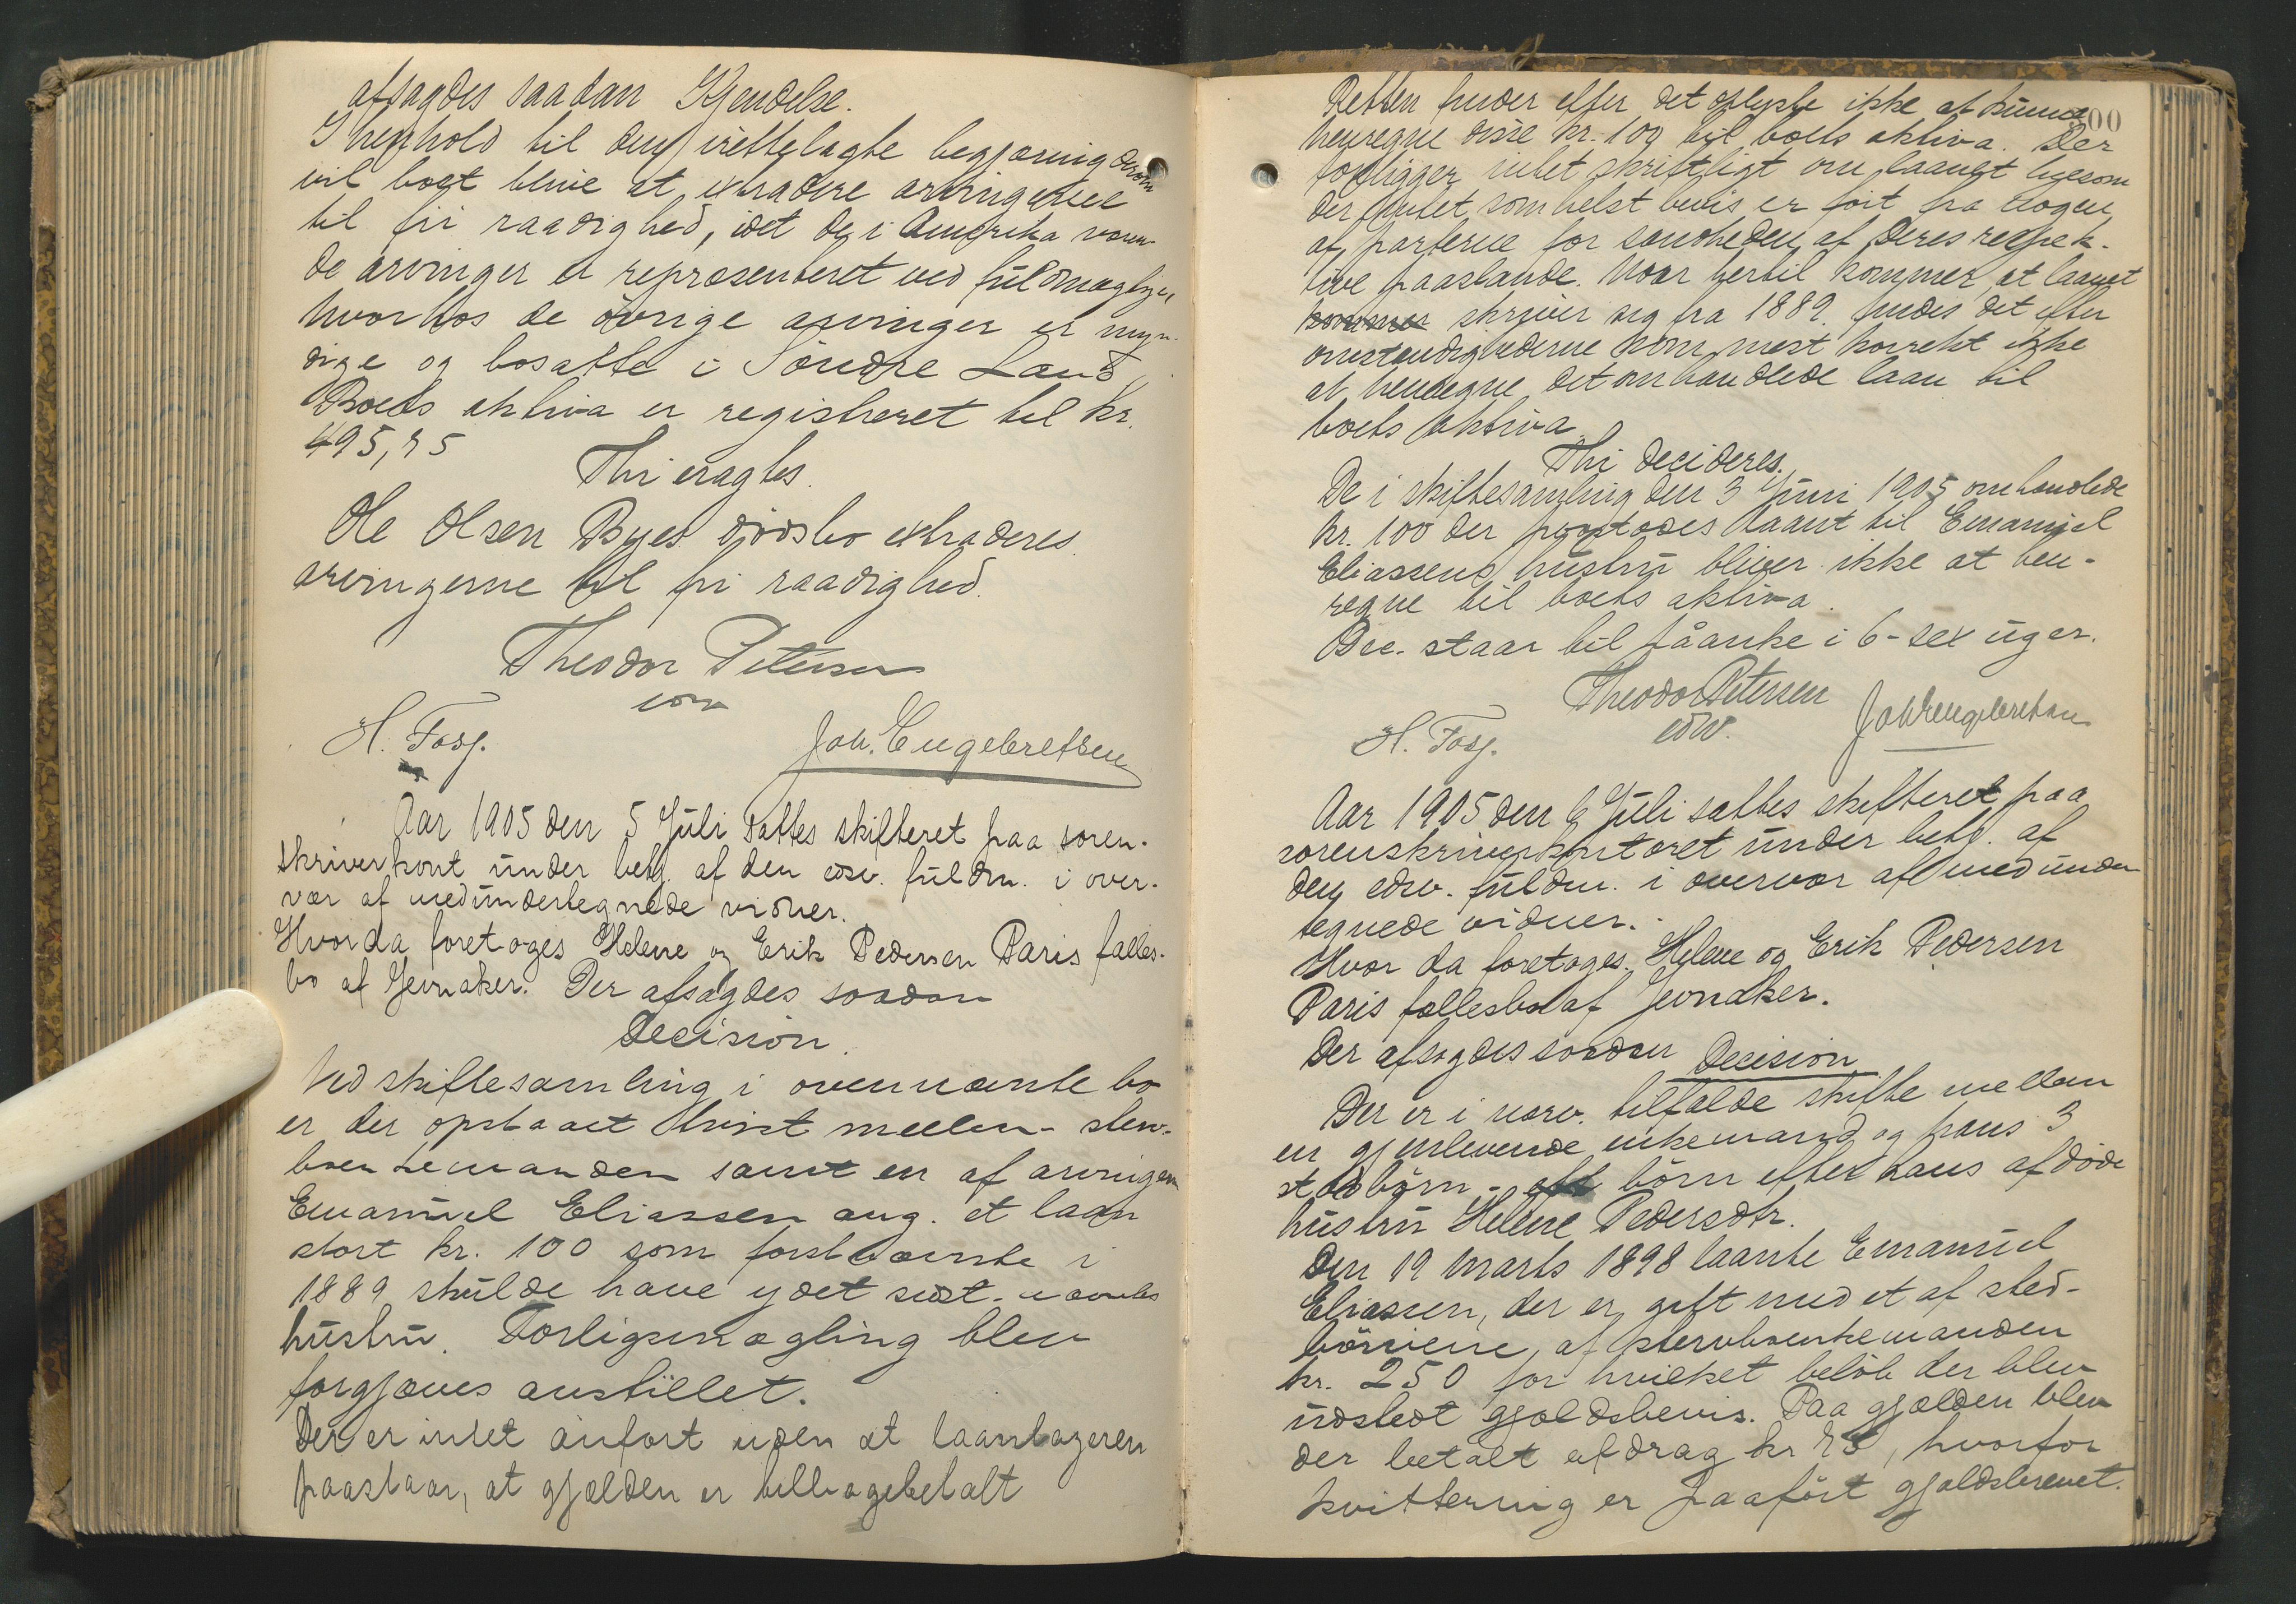 afsagdes saadan Kjendelse.
I henhold til den irettelagte begjæring derom
vil boet blive at extradere arvingerne
til fri raadighed, idet de i Amerika væren-
de arvinger er repræsenteret ved fuldmægtig,
hvorhos de øvrige arvinger er myn-
dige og bosatte i Søndre Land.
Boets aktiva er registreret til kr.
495,75
Thi eragtes.
Ole Olsen Byes dødsbo extraderes
arvingerne til fri raadighed.
Theodor Petersen
edsv
H. Fosg. Joh. Engebretsen
Aar 1905 den 5 Juli sattes skifteret paa soren-
skriverkont under bety. af den edsv. fuldm. i over-
vær af medundertegnede vidner.
Hvor da foretoges Helene og Erik Pedersen Paris fælles-
bo af Jevnaker. Der afsagdes saadan
Decision.
Ved skiftesamling i ovennævnte bo
er der opstaaet tvist mellem sterv-
boenkemanden samt en af arvingerne
Emanuel Eliassen ang. et laan
stort kr. 100 som førstnævnte i
1889 skulde have ydet sidst-nævntes
hustru. Forligsmægling blev
forgjæves anstillet.
Der er intet anført uden at laantageren
paastaar, at gjælden er tilbagebetalt
00
Retten finder efter det oplyste ikke at kunne
henregne disse kr. 100 til boets aktiva. Der
foreligger intet skriftligt om laanet ligesom
der intet somhelst bevis er ført fra nogen
af parterne for sandheden af deres respek-
tive paastande. Naar hertil kommer at laanet
kommer skriver sig fra 1889 findes det efter
omstændighederne som mest korrekt ikke
at henregne det omhandlede laan til
boets aktiva.
Thi decideres.
De i skiftesamling den 3 Juni 1905 omhandlede
kr. 100 der paastodes laant til Emanuel
Eliassens hustru bliver ikke at hen-
regne til boets aktiva.
Dec. staar til paaanke i 6-sex uger.
Theodor Petersen
edsv.
H. Fosg. Joh Engebretsen
Aar 1905 den 6 Juli sattes skifteret paa
sorenskriverkontoret under bety. af
den edsv. fuldm. i overvær af medunder
tegnede vidner.
Hvor da foretoges Helene og Erik Pedersen
Paris fællesbo af Jevnaker.
Der afsagdes saadan Decision
Der er i nærv. tilfælde skifte mellem
en gjenlevende enkemand og hans 3
stedbørn - børn efter hans afdøde
hustru Helene Pedersdtr.
Den 19 marts 1898 laante Emanuel
Eliassen, der er gift med et af sted-
børnene, af stervboenkemanden
kr. 250 for hvilket beløb der blev
udstedt gjældsbevis. Paa gjælden blev
der betalt afdrag kr 75, hvorfor
kvittering er paaført gjældsbrevet.